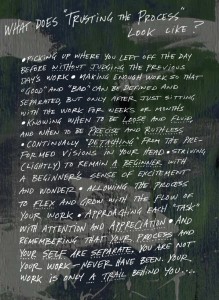 WHAT DOES "TRUSTING THE PROCESS"
LOOK LIKE?
• PICKING UP WHERE YOU LEFT OFF THE DAY
BEFORE WITHOUT JUDGING THE PREVIOUS
DAY'S WORK • MAKING ENOUGH WORK SO THAT
"GOOD" AND "BAD" CAN BE DEFINED AND
SEPARATED BUT ONLY AFTER JUST SITTING
WITH THE WORK FOR WEEKS OR MONTHS
• KNOWING WHEN TO BE LOOSE AND FLUID,
AND WHEN TO BE PRECISE AND RUTHLESS
• CONTINUALLY "DETACHING" FROM THE PRE-
FORMED VISIONS (IN YOUR HEAD) • STRIVING
(SLIGHTLY) TO REMAIN A BEGINNER WITH
A BEGINNER'S SENSE OF EXCITEMENT
AND WONDER • ALLOWING THE PROCESS
TO FLEX AND GROW WITH THE FLOW OF
YOUR WORK • APPROACHING EACH "TASK"
WITH ATTENTION AND APPRECIATION • AND
REMEMBERING THAT YOUR PROCESS AND
YOUR SELF ARE SEPARATE. YOU ARE NOT
YOUR WORK — NEVER HAVE BEEN. YOUR
WORK IS ONLY A TRAIL BEHIND YOU....